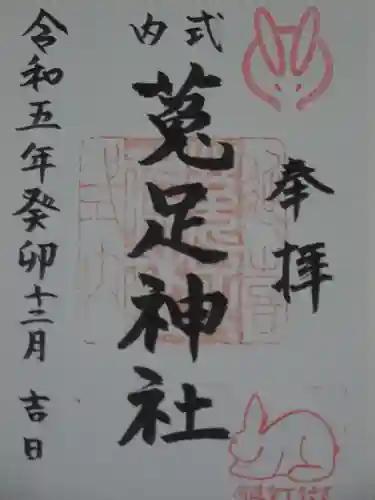 奉拝
式内
菟足神社
令和五年癸卯十二月 吉日